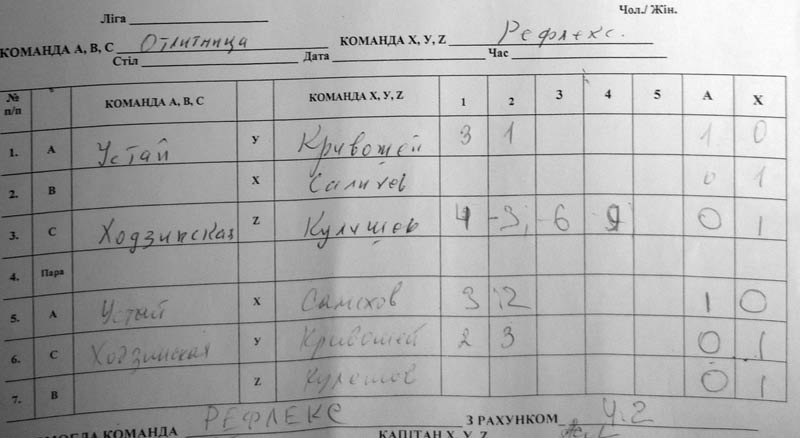 Ліга Чол./ Жін.
КОМАНДА А, В, С Отлитница КОМАНДА Х, У, Z Рефлекс.
Стіл Дата Час
№ п/п КОМАНДА А, В, С КОМАНДА Х, У, Z 1 2 3 4 5 А Х
1. А Устай У Кривошей 3 1 1 0
2. В Х Салихов 0 1
3. С Ходзинская Z Кулешов 4 -3, -6 9 0 1
4. Пара
5. А Устый Х Самехов 3 12 1 0
6. С Ходзинская У Кривошей 2 3 0 1
7. В Z Кулешов 0 1
МОГЛА КОМАНДА РЕФЛЕКС З РАХУНКОМ 4:2
КАПІТАН Х, У, Z